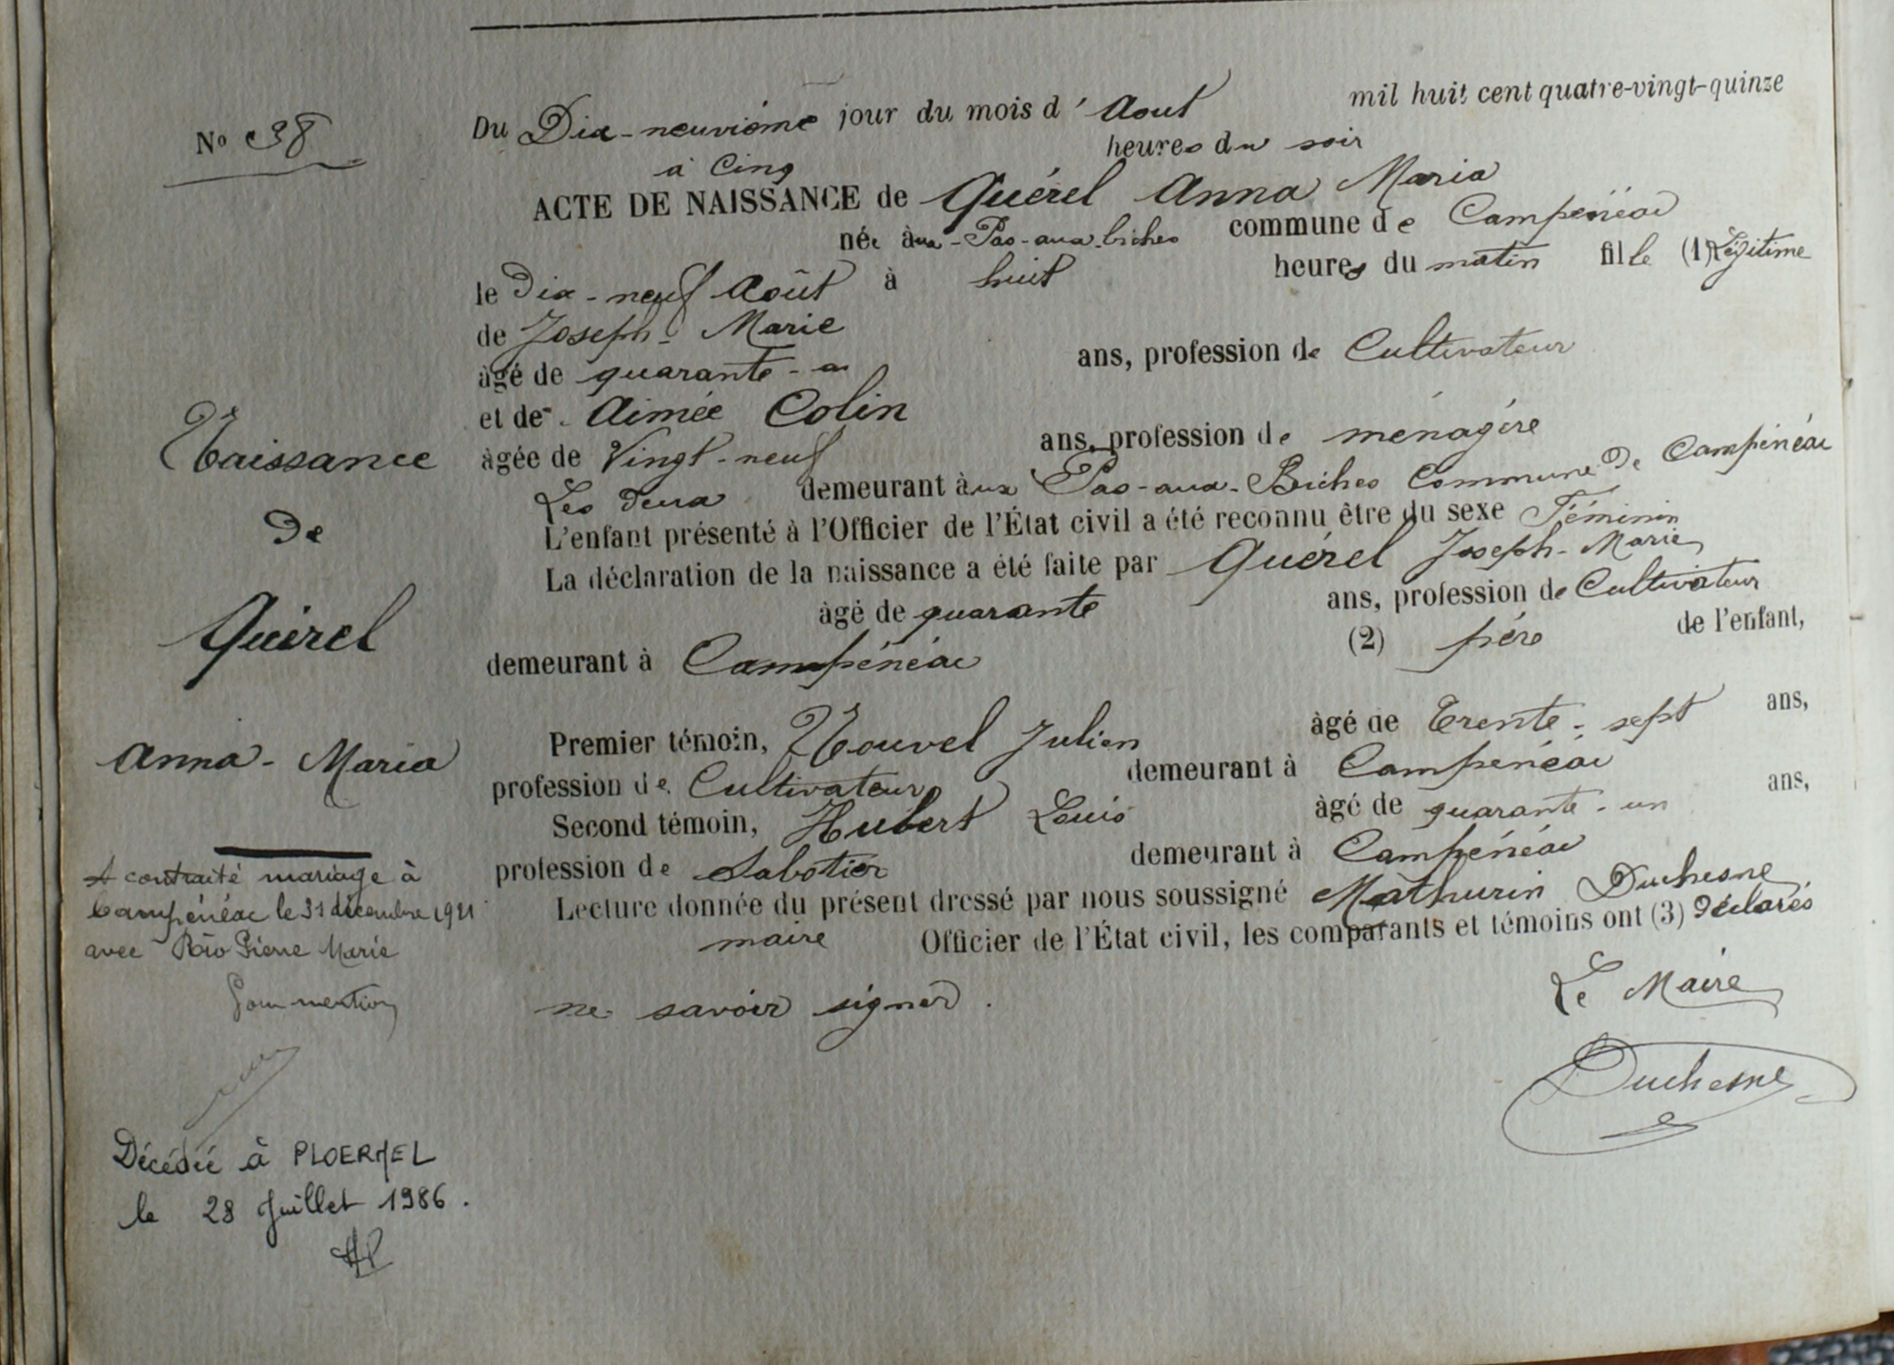 N° 38
Naissance
de
Quérel
Anna - Maria
A contracté mariage à
Campénéac le 31 décembre 1921
avec Rio Pierre Marie
Pour mention
Décédée à PLOERMEL
le 28 Juillet 1986.
Du Dix-neuvième jour du mois d'Aout mil huit cent quatre-vingt-quinze
à Cinq heures du soir
ACTE DE NAISSANCE de Quérel Anna Maria
née aux Pas-aux-biches commune de Campénéac
le Dix-neuf Août à huit heures du matin fille (1) Légitime
de Joseph-Marie
âgé de quarante ans, profession de Cultivateur
et de Aimée Colin
âgée de Vingt-neuf ans, profession de ménagère
Les deux demeurant aux Pas-aux-Biches Commune de Campénéac
L'enfant présenté à l'Officier de l'État civil a été reconnu être du sexe Féminin
La déclaration de la naissance a été faite par Quérel Joseph-Marie
âgé de quarante ans, profession de Cultivateur
demeurant à Campénéac (2) père de l'enfant,
Premier témoin, Nouvel Julien âgé de Trente-sept ans,
profession de Cultivateur demeurant à Campénéac
Second témoin, Hubert Louis âgé de quarante-un ans,
profession de Sabotier demeurant à Campénéac
Lecture donnée du présent dressé par nous soussigné Mathurin Duchesne
maire Officier de l'État civil, les comparants et témoins ont (3) déclarés
ne savoir signer.
Le Maire
Duchesne